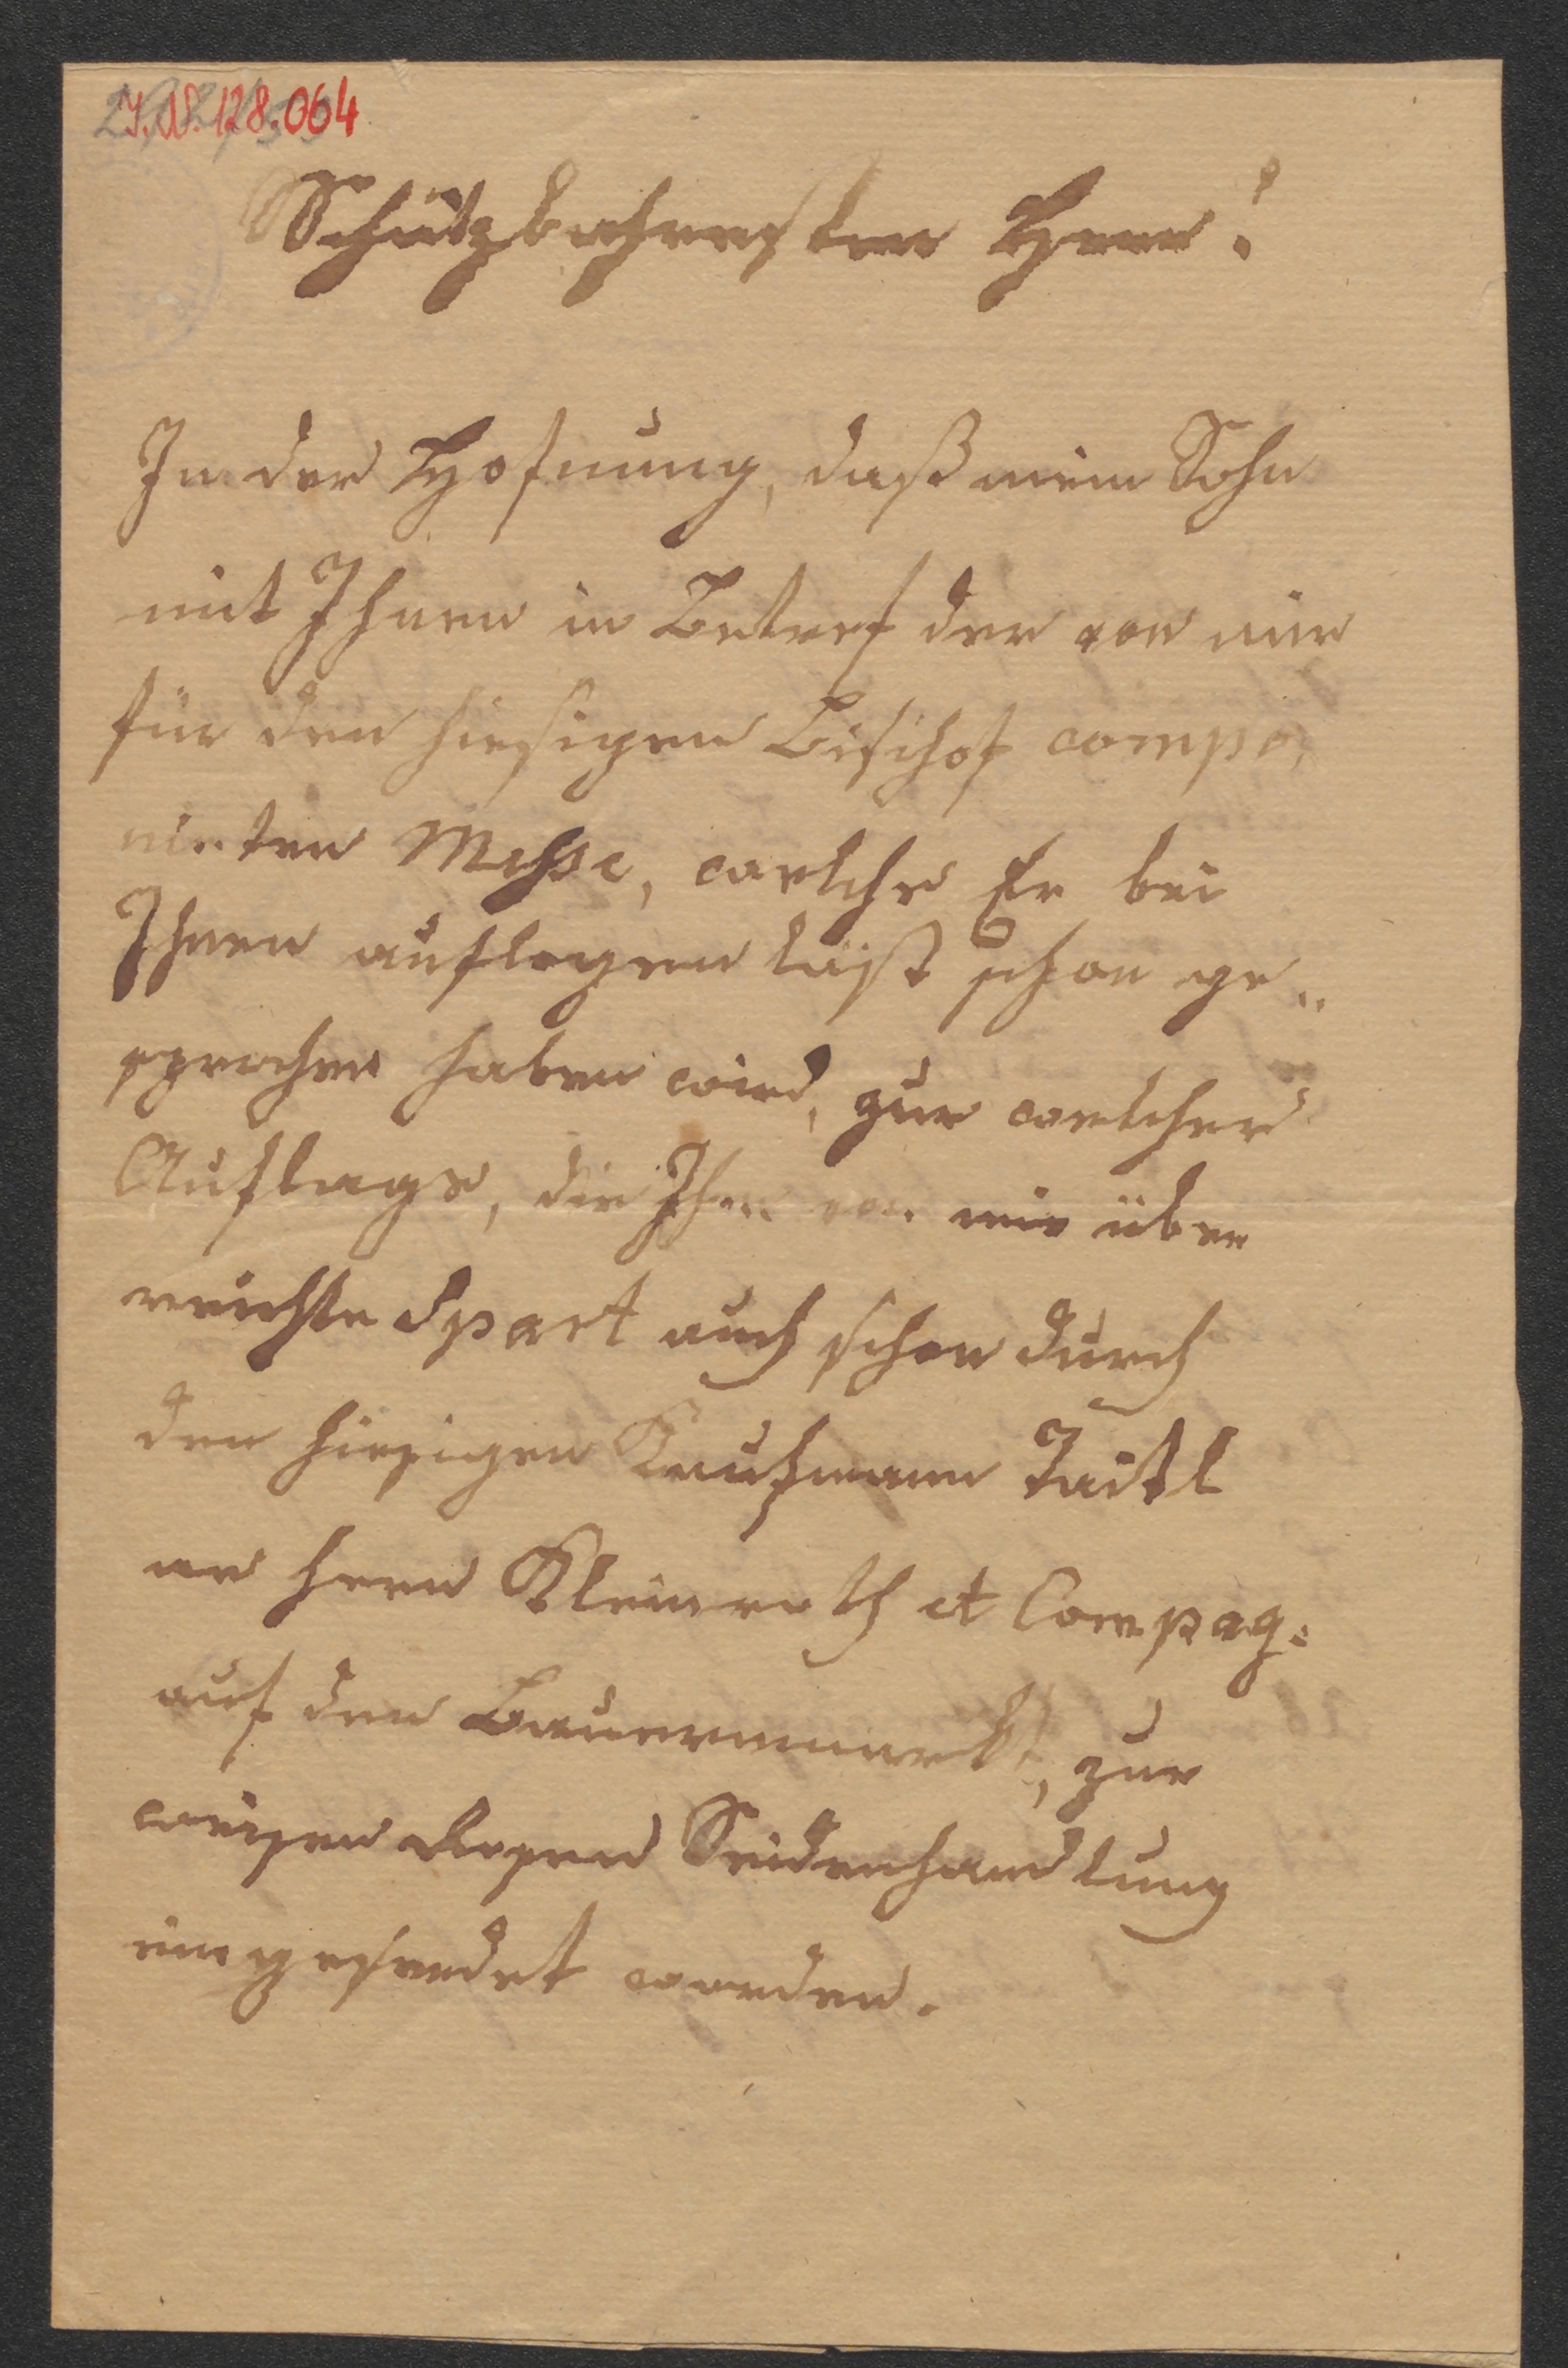 I.N. 128.064
Schätzbahrester Herr!
In der Hofnung, daß mein Sohn
mit Ihnen in Betref der von mir
für den hiesigen Bischof compo
nirten Messe, welche Er bei
Ihnen auflegen läßt schon ge„
sprochen haben wird, zur welcher
Auflage, die Ihm von mir über
reichte Spart auch schon durch
den hiesigen Kaufmann Taitl
an Herrn Kleinrath et Compag:
auf den Bauernmarkt, zur
weisen Seidenhandlung
eingesendet worden.